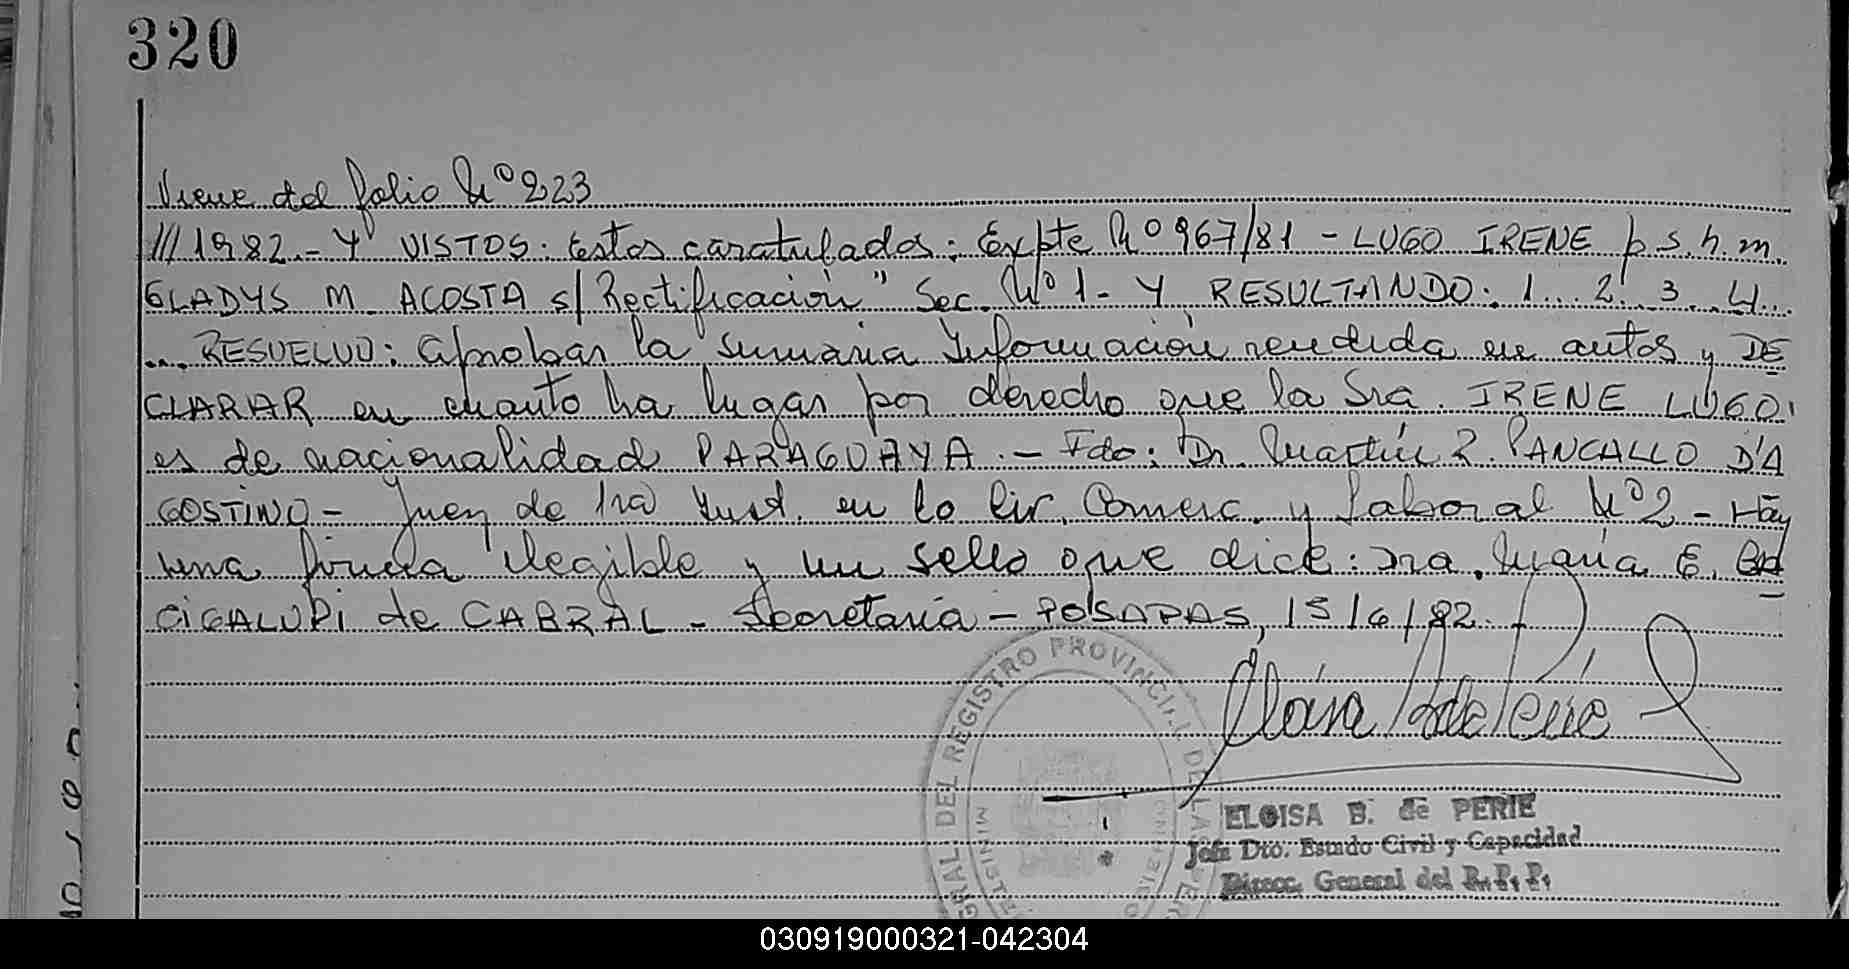 320
Viene del folio Nº 223
/// 1982.- Y VISTOS: Estos caratulados: Expte Nº 967/81 - LUGO IRENE p.s.h.m.
GLADYS M. ACOSTA s/ Rectificación" Sec. Nº 1- Y RESULTANDO: 1... 2. 3... 4...
... RESUELVO: Aprobar la sumaria Información rendida en autos y DE
CLARAR en cuanto ha lugar por derecho que la Sra. IRENE LUGO,
es de nacionalidad PARAGUAYA.- Fdo: Dr. Martín R. PANCALLO D'A
GOSTINO - Juez de 1ra Inst. en lo Civ. Comerc. y Laboral Nº 2 - Hay
una firma ilegible y un sello que dice: Dra. María E.
CIGALUPI de CABRAL - Secretaria - POSADAS, 15/6/82.
GRAL. DEL REGISTRO PROVINCIAL DE LAS PER
MINISTER
ELOISA B. de PERIE
Jefa Dto. Estado Civil y Capacidad
Direcc. General del R. P. P.
030919000321-042304